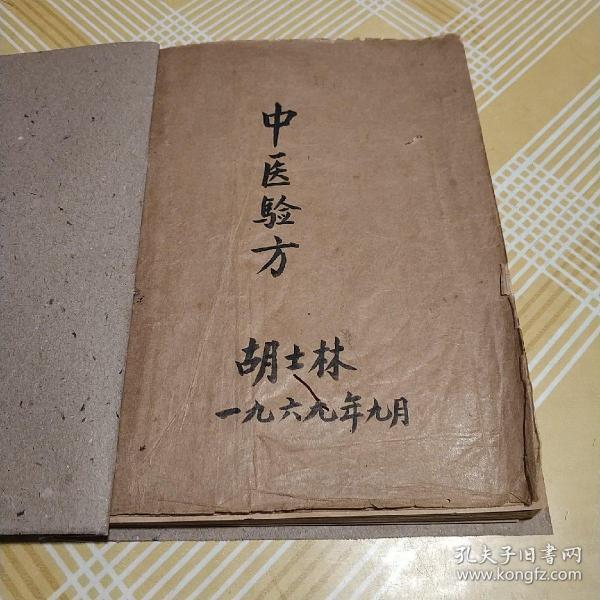 中医验方
胡士林
一九六九年九月
孔夫子旧书网
www.kongfz.com